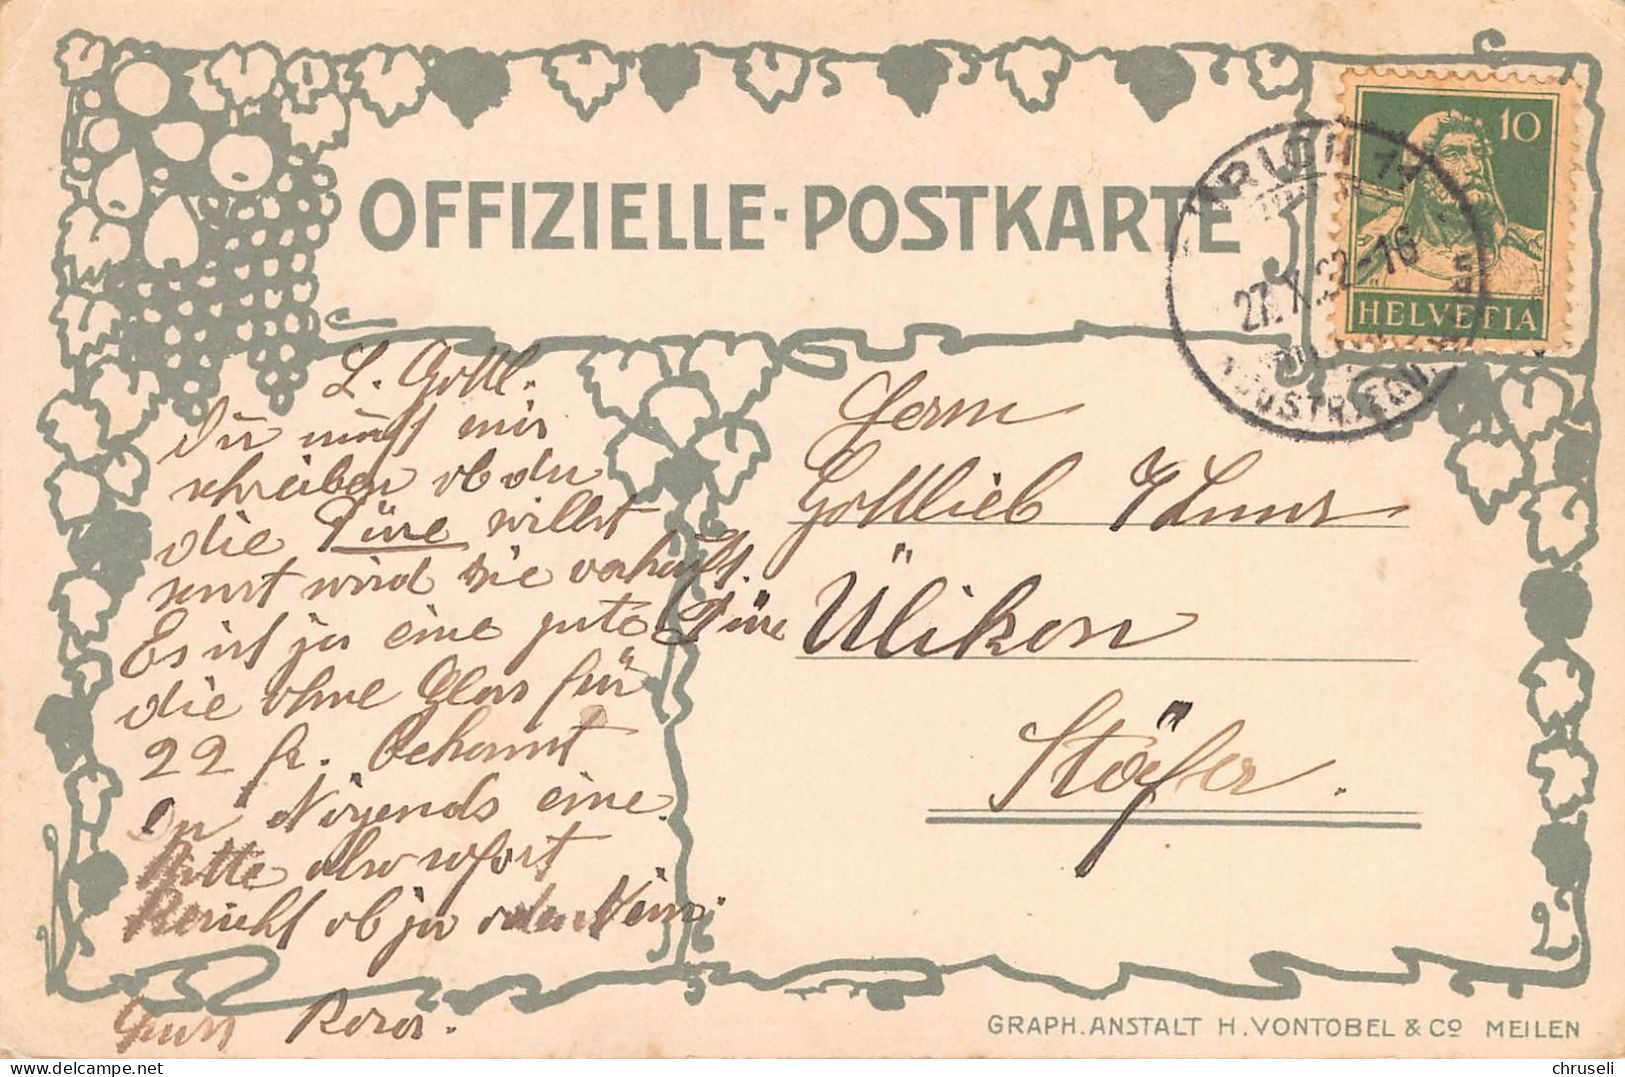 OFFIZIELLE-POSTKARTE
10
HELVETIA
27. X. 22-16
L. Gottl.
Du musst mir
schreiben ob du
die Türe willst
sonst wird sie verkauft.
Es ist ja eine gute Türe
die ohne Glas für
22 fr. bekomst
du Nirgends eine.
Bitte also sofort
Bericht ob ja oder Nein.
Gruss Rosa.
Herrn
Gottlieb
Ülikon
Stäfa.
GRAPH. ANSTALT H. VONTOBEL & Co MEILEN
chruseli